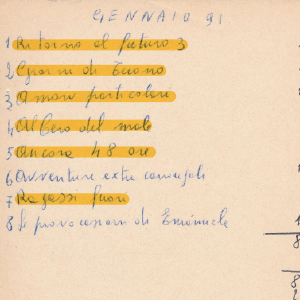 GENNAIO 91
1 Ritorno al futuro 3
2 Giorni di Tuono
3 Amori particolari
4 Albero del male
5 Ancora 48 ore
6 Avventure extra coniugali
7 Ragazzi fuori
8 Le provocazioni di Emanuele